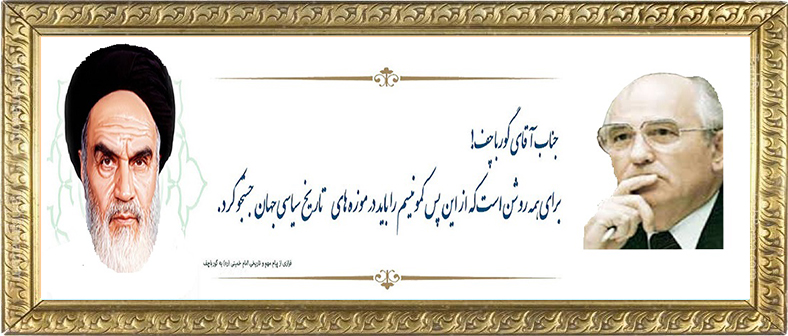 جناب آقای گورباچف!
برای همه روشن است که از این پس کمونیسم را باید در موزه های تاریخ سیاسی جهان جستجو کرد.
فرازی از پیام مهم و تاریخی امام خمینی (ره) به گورباچف